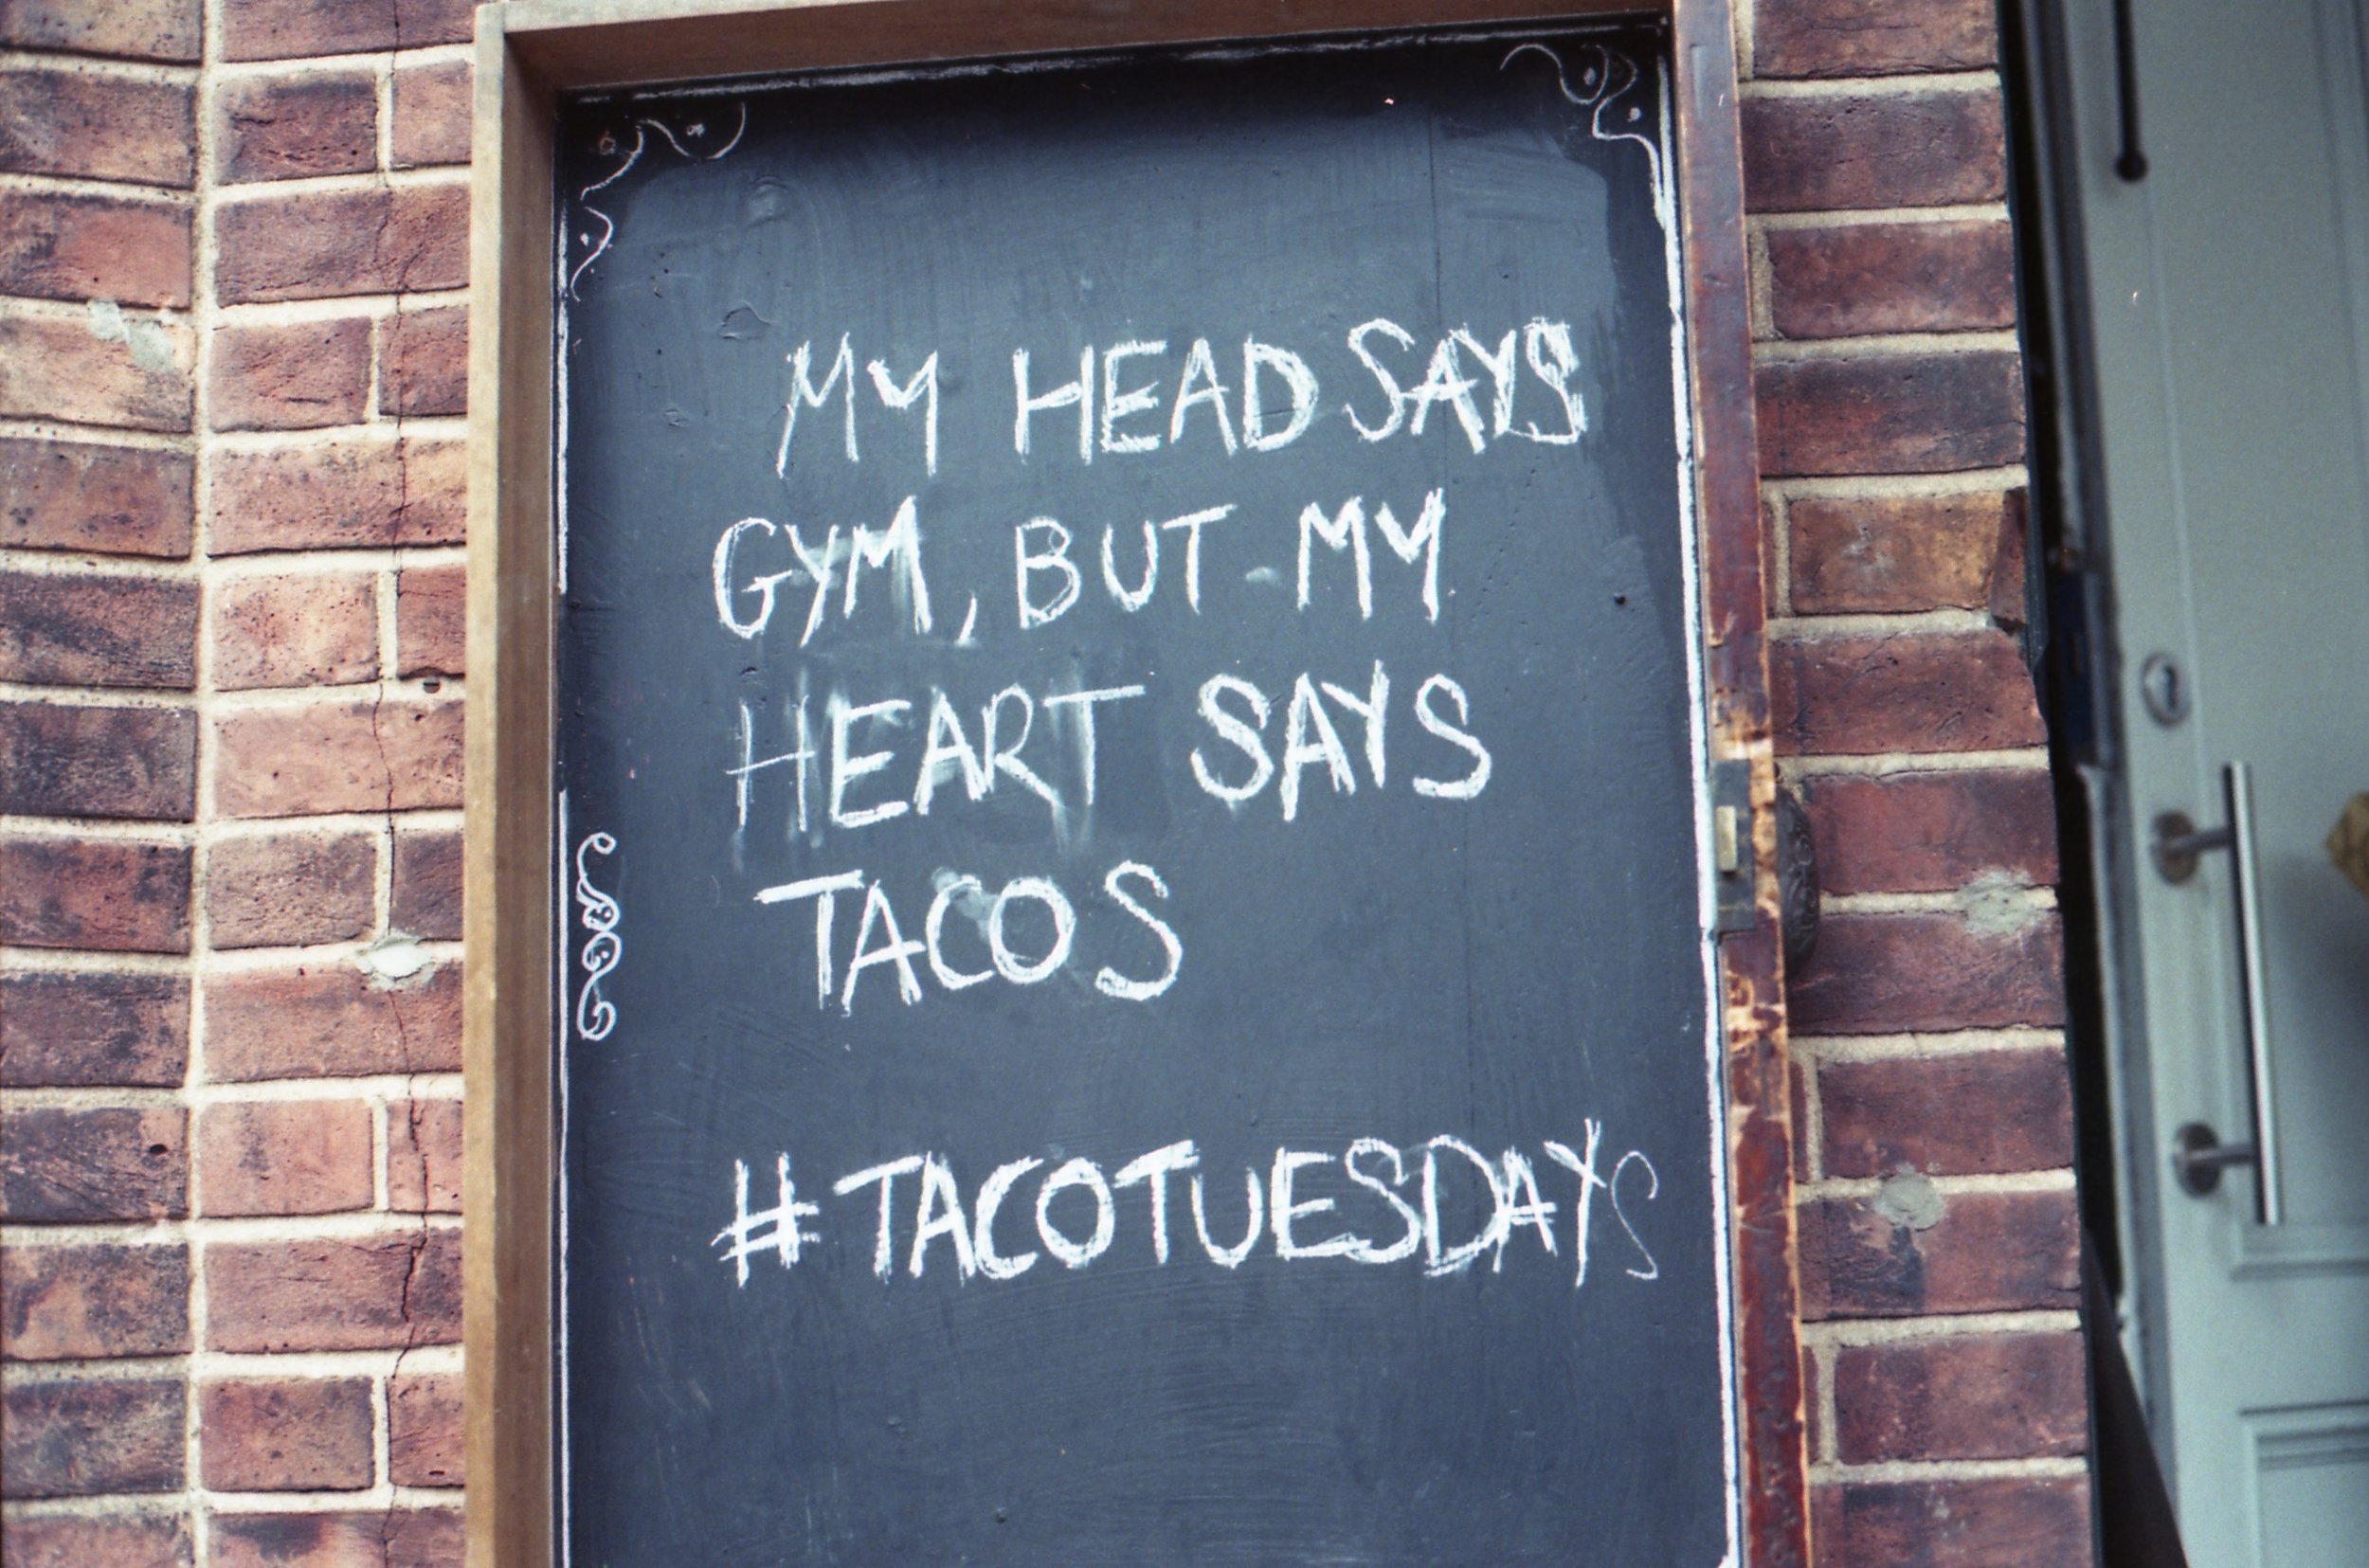 MY HEAD SAYS
GYM, BUT MY
HEART SAYS
TACOS
#TACOTUESDAYS